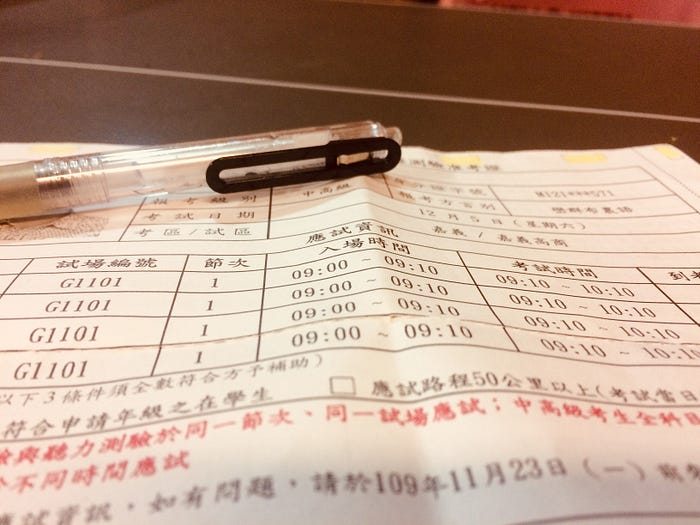 測驗准考證
報考級別 中高級 身分證字號 M121***571
考試日期 報考方言別 巒群布農語
12 月 5 日 (星期六)
考區/試區 嘉義 / 嘉義高商
應試資訊
試場編號 節次 入場時間 考試時間 到考
G1101 1 09:00 ~ 09:10 09:10 ~ 10:10
G1101 1 09:00 ~ 09:10 09:10 ~ 10:10
G1101 1 09:00 ~ 09:10 09:10 ~ 10:10
以下3條件須全數符合方予補助)
符合申請年級之在學生 □ 應試路程50公里以上(考試當日
驗與聽力測驗於同一節次、同一試場應試；中高級考生全科
於不同時間應試
應試資訊，如有問題，請於109年11月23日（一）